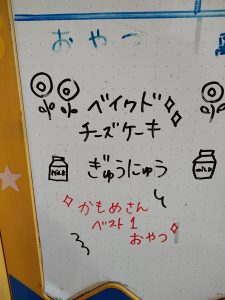 おやつ
ベイクド
チーズケーキ
MILK
ぎゅうにゅう
milk
かもめさん
ベスト1
おやつ